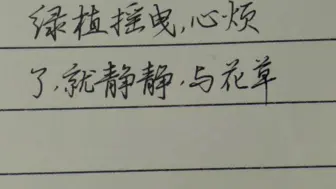 绿植摇曳,心烦
了,就静静,与花草